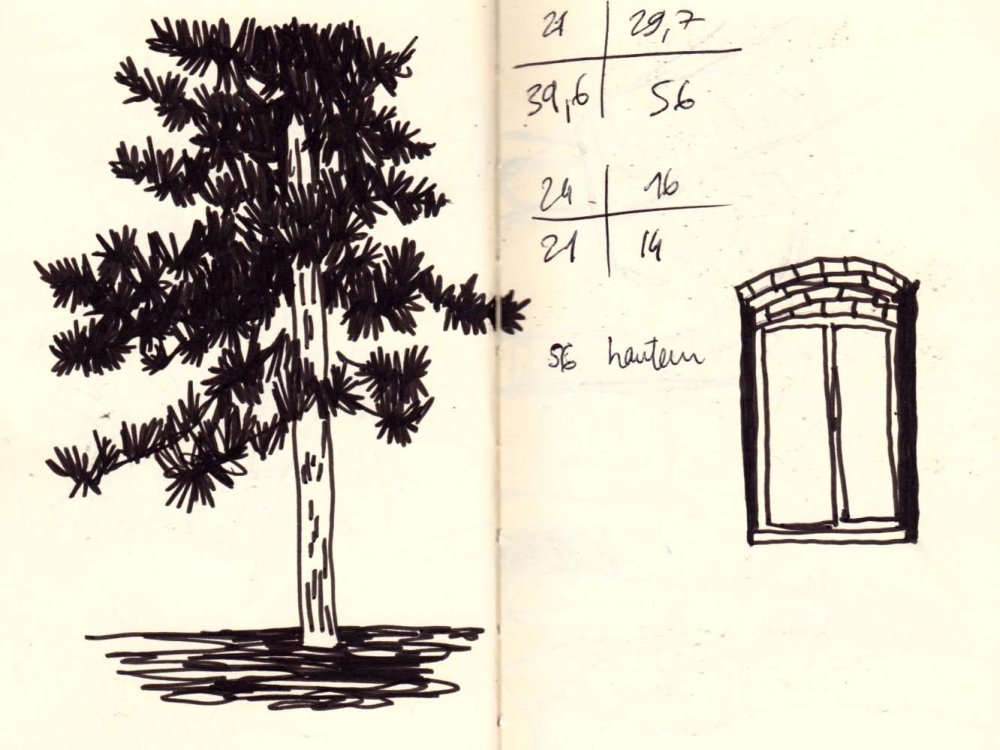 21 29,7
39,6 56
24 16
21 14
56 hauteur